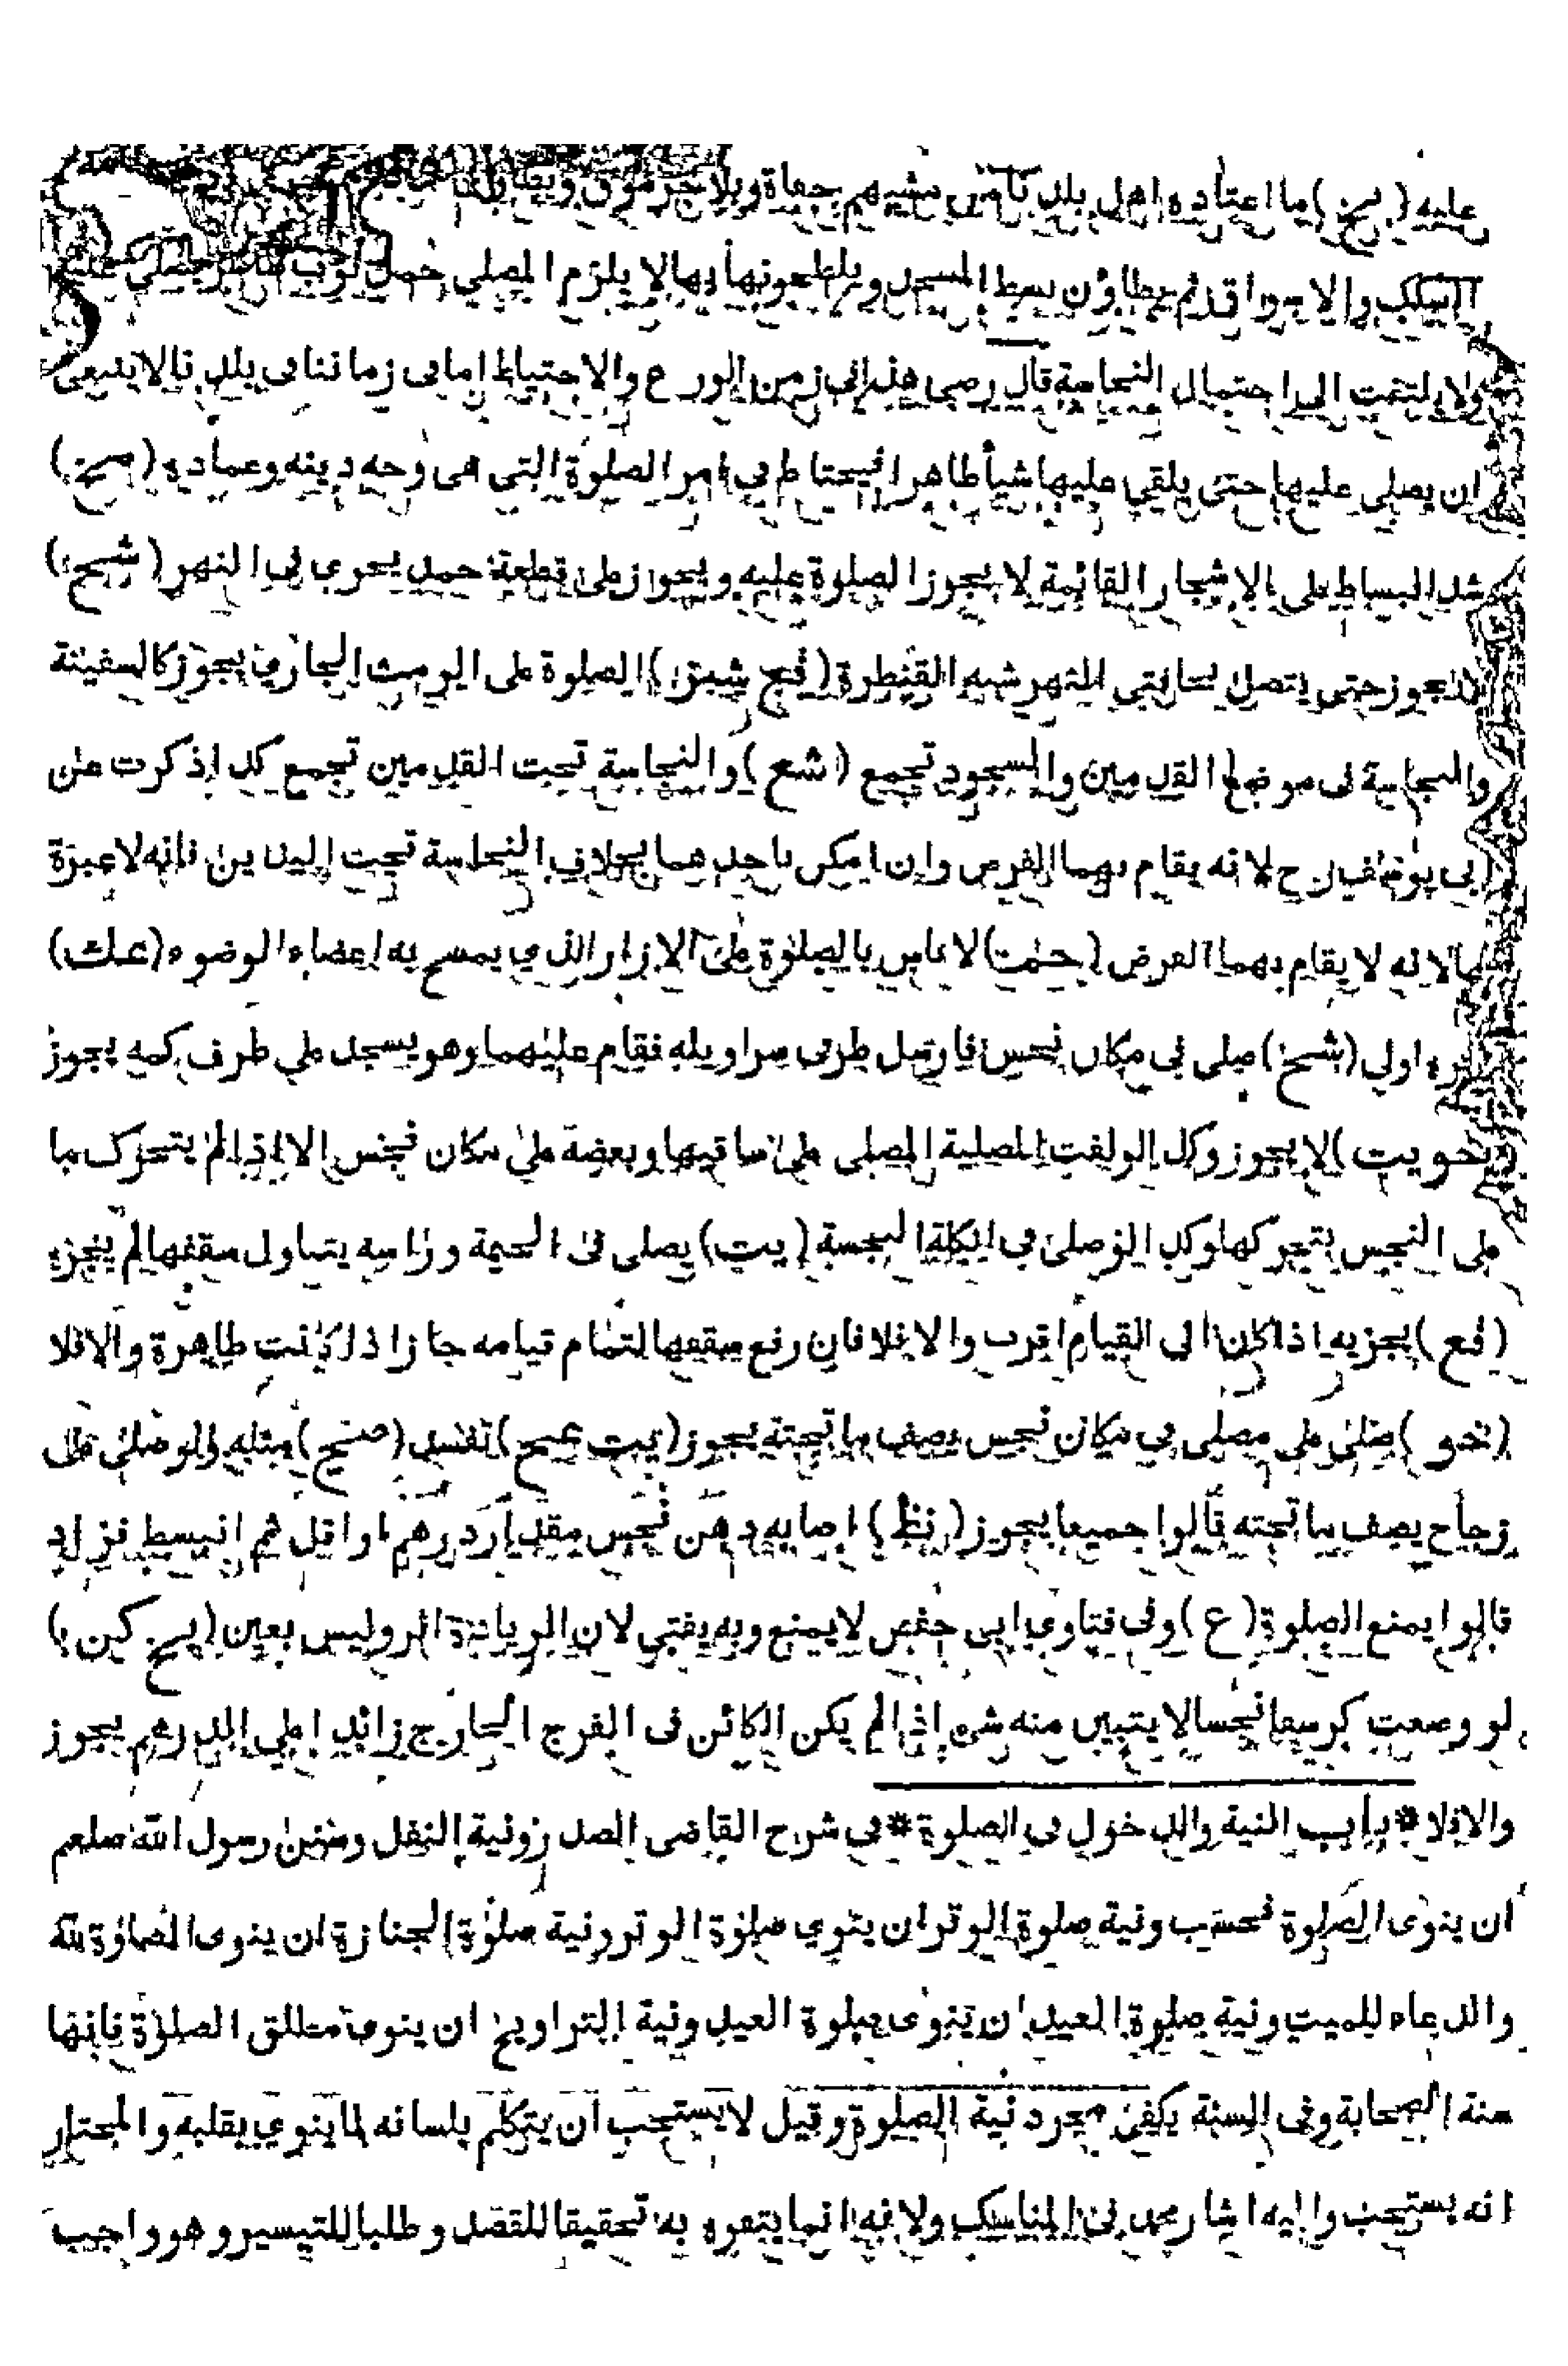 عليه (بخ) ما اعتاده اهل بلدنا من مشيهم حفاة وبلا جرموق
السكك والاسواق ثم يطاؤن بسط المسجد ويلطخونها بها لا يلزم المصلي حمل ثوب طاهر
ولا يلتفت الى احتمال النجاسة قال رضى هذا فى زمن الورع والاحتياط اما فى زماننا فى بلدنا لا ينبغى
ان يصلى عليها حتى يلقى عليها شيأ طاهرا فيحتاط فى امر الصلوة التي هى وجه دينه وعماده (صخ)
شد البساط على الاشجار القائمة لا يجوز الصلوة عليه ويجوز على قطعة جمد يجرى فى النهر (شبخ)
لا يجوز حتى يتصل بحافتى النهر شبه القنطرة (فج شبق) الصلوة على الرمث الجارى يجوز كالسفينة
والنجاسة فى موضع القدمين والسجود تجمع (شع) والنجاسة تحت القدمين تجمع كل اذكرت عن
ابى يوسف رح لانه يقام بهما الفرض وان امكن باحدهما بخلاف النجاسة تحت اليدين فانه لا عبرة
بها لانه لا يقام بهما الفرض (حلت) لا باس بالصلوة على الازار الذي يمسح به اعضاء الوضوء (عك)
اولى (شخ) صلى فى مكان نجس فارسل طرفى سراويله فقام عليهما وهو يسجد على طرف كمه يجوز
(نحو يت) لا يجوز وكذا لو لفت المصلية المصلى على ساقيها وبعضه على مكان نجس الا اذا لم يتحرك ما
على النجس بتحركها وكذا لو صلى فى الكلة النجسة (يت) يصلى فى الخيمة وراسه يتناول سقفها لم يجزه
(فع) يجزيه اذا كان الى القيام اقرب والا فلا فان رفع سقفها لتمام قيامه جاز اذا كانت طاهرة والا فلا
(نحو) صلى على مصلى فى مكان نجس يصف ما تحته يجوز (يت عبج) تفسد (صبح) مثله ولو صلى على
زجاج يصف ما تحته قالوا جميعا يجوز (نظ) اصابه دهن نجس مقدار درهم او اقل ثم انبسط فزاد
قالوا يمنع الصلوة (ع) وفى فتاوى ابى حفص لا يمنع وبه يفتى لان الزيادة اثر وليس بعين (بخ كن)
لو وضعت كرسفا نجسا لا يتبين منه شئ اذا لم يكن الكائن فى الفرج الخارج زائدا على الدرهم يجوز
والا فلا * باب النية والدخول فى الصلوة * فى شرح القاضى الصدر ونية النفل وسنن رسول الله صلعم
ان ينوى الصلوة فحسب ونية صلوة الوتر ان ينوي صلوة الوتر ونية صلوة الجنازة ان ينوى الصلوة لله
والدعاء للميت ونية صلوة العيد ان ينوى صلوة العيد ونية التراويح ان ينوى مطلق الصلوة فانها
سنة الصحابة وفى السنة يكفى مجرد نية الصلوة وقيل لا يستحب ان يتكلم بلسانه لما ينوي بقلبه والمختار
انه يستحب واليه اشار محمد فى المناسك ولانه انما يتفوه به تحقيقا للقصد وطلبا للتيسير وهو واجب